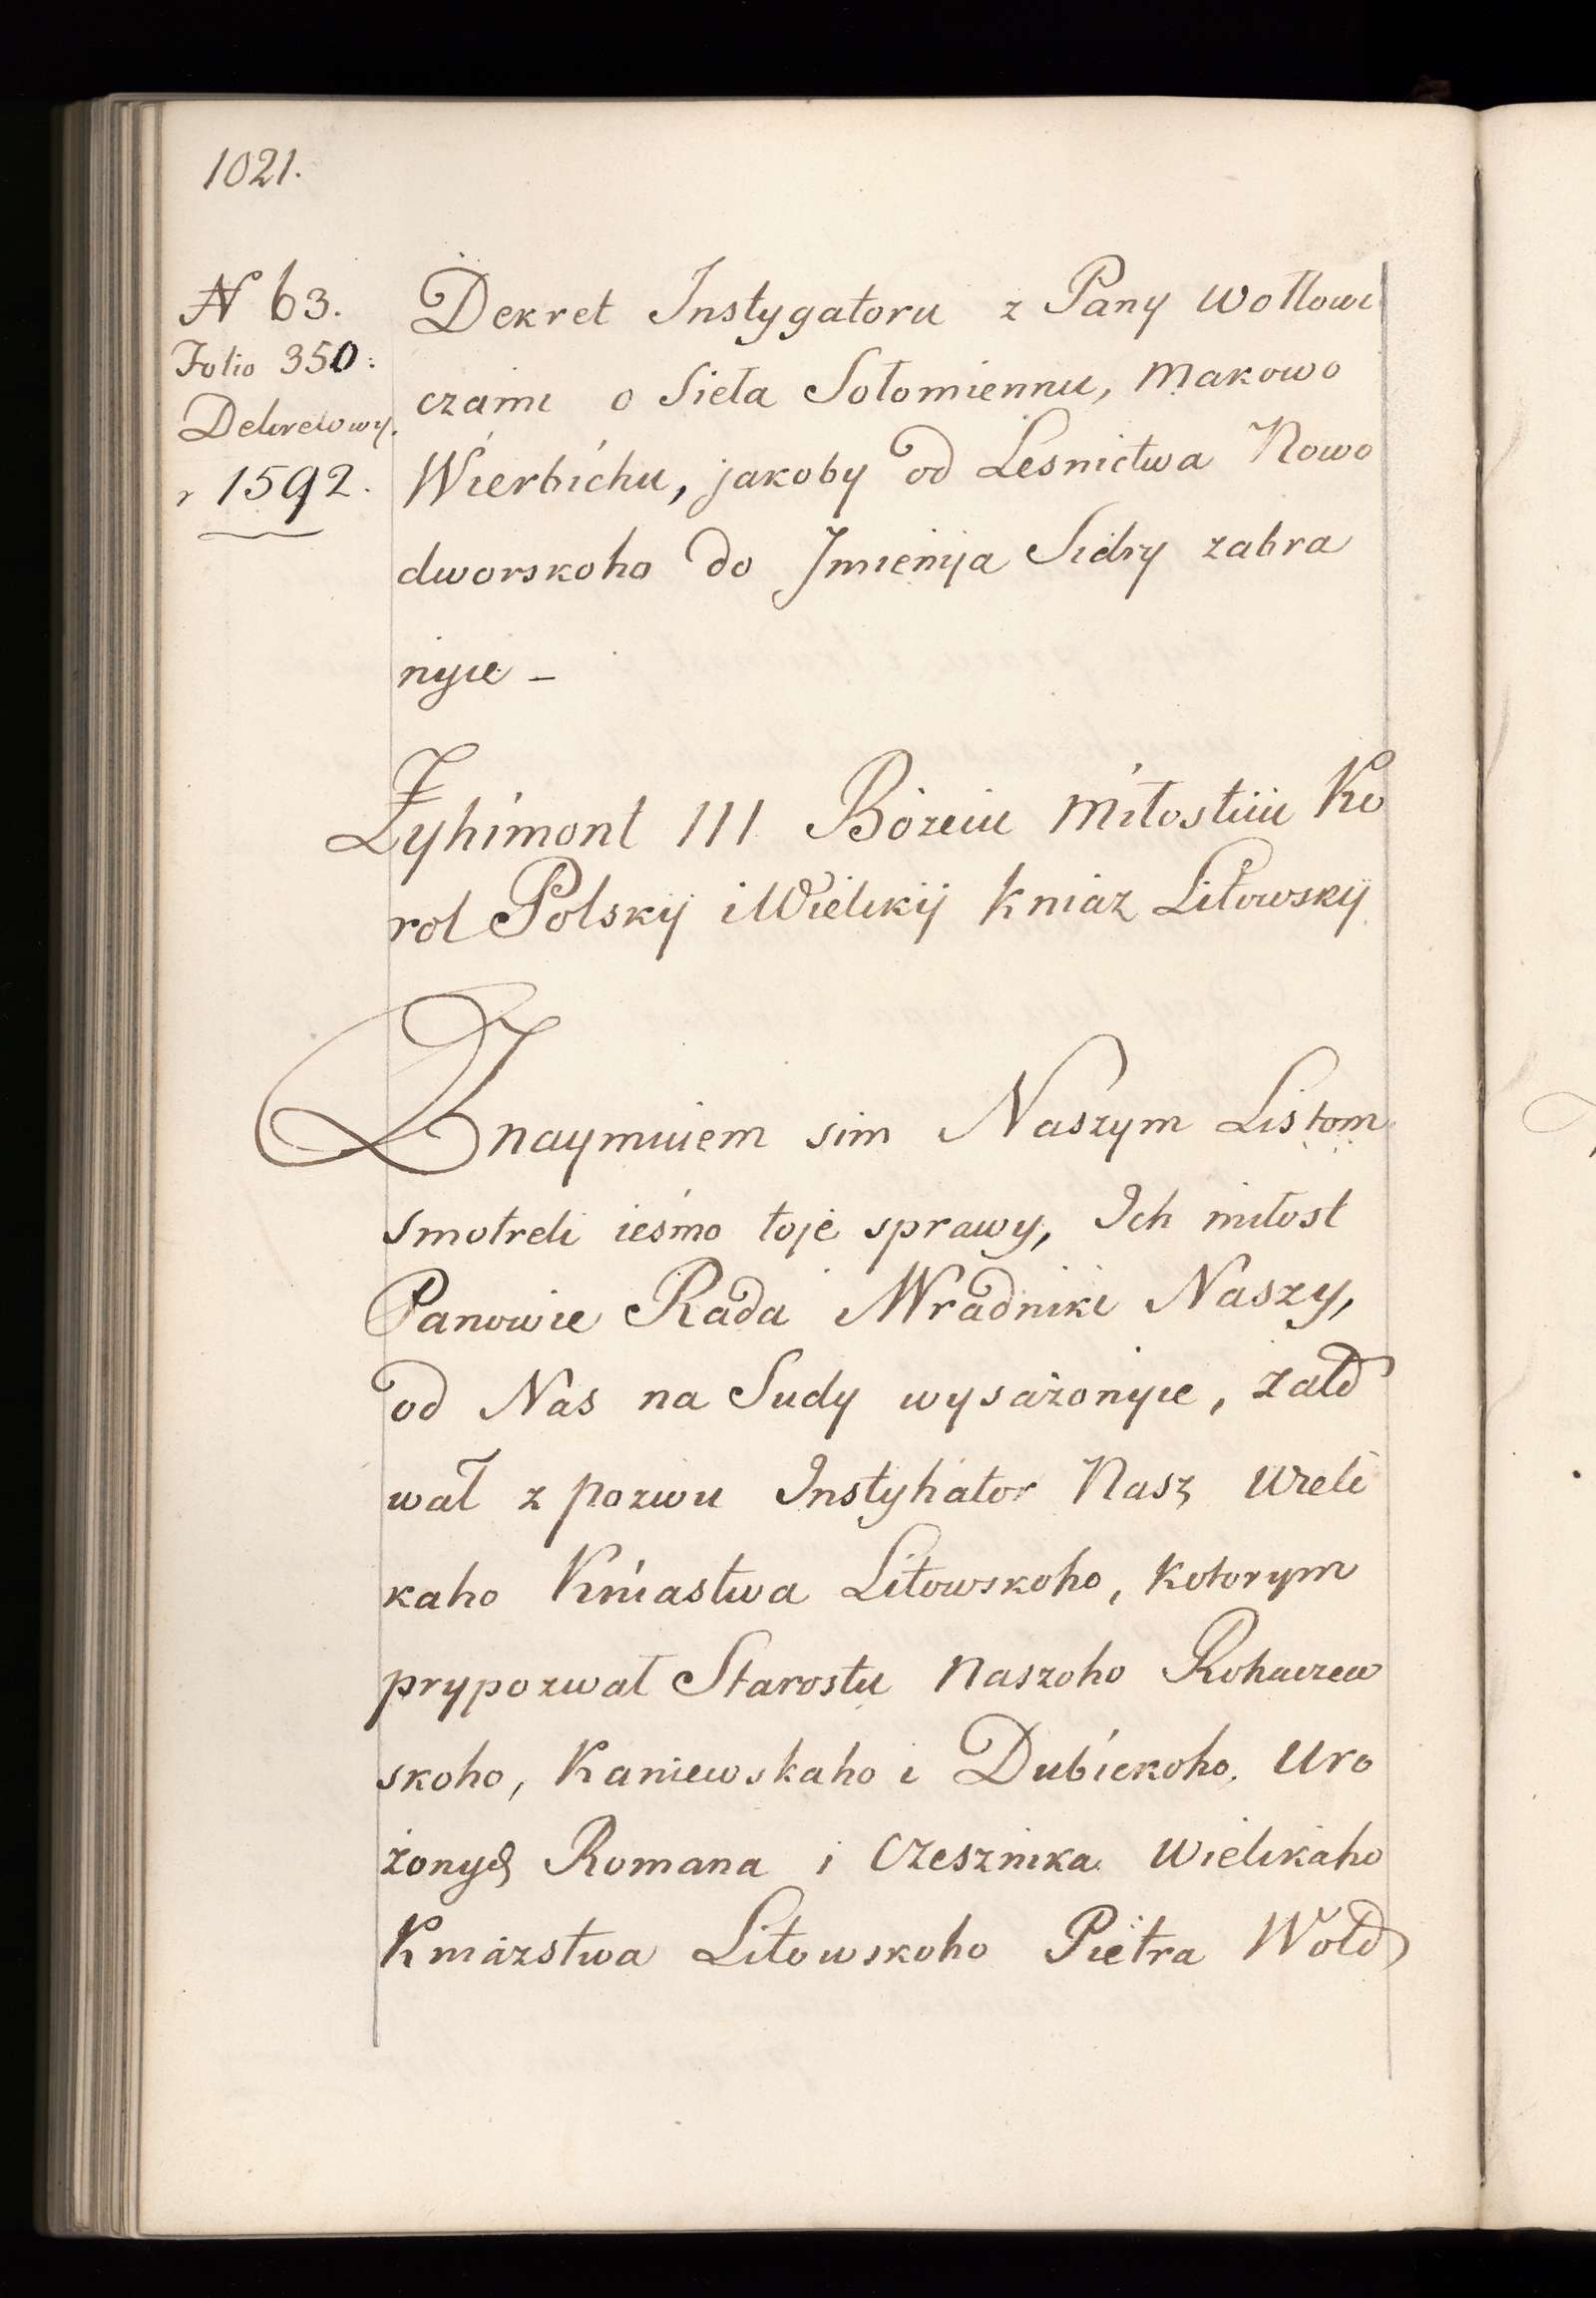 1021.
N 63.
Folio 350.
Dekretowy.
r 1592.
Dekret Instygatoru z Pany Wołłowi
czami o Sieła Sołomiennu, Makowo
Wierbichu, jakoby od Leśnictwa Nowo
dworskoho do Jmienija Sidry zabra
nyie –
Żyhimont III Bożeiu Miłostiiu Ko
rol Polskij i Wielikij Kniaz Litowskij
Znaymuiem sim Naszym Listom
smotreli ieśmo toje sprawy, Ich miłost
Panowie Rada Wradniki Naszy,
od Nas na Sudy wysażonyie, żało
wał z pozwu Instyhator Nasz Weli
kaho Kniastwa Litowskoho, kotorym
prypozwał Starostu Naszoho Rohaczew
skoho, Kaniewskaho i Dubickoho. Uro
żonych Romana i Czesznika Wielikaho
Kniazstwa Litowskoho Piętra Woło